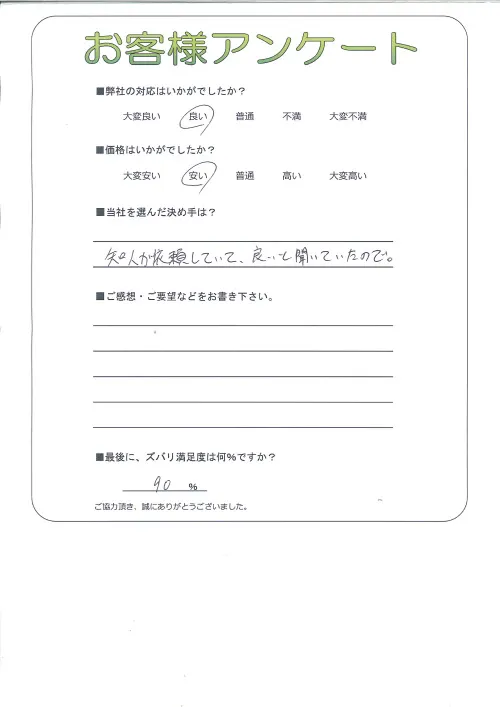 お客様アンケート
■弊社の対応はいかがでしたか？
大変良い 良い 普通 不満 大変不満
■価格はいかがでしたか？
大変安い 安い 普通 高い 大変高い
■当社を選んだ決め手は？
知人が依頼していて、良いと聞いていたので。
■ご感想・ご要望などをお書き下さい。
■最後に、ズバリ満足度は何％ですか？
90 ％
ご協力頂き、誠にありがとうございました。